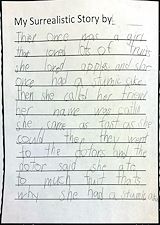 My Surrealistic Story by
Ther once was a girl
that loved lots of fruits
she loved apples and she
once had a tumic ake
then she calld her friend
her name was calla
she came as fast as she
could then they went
to the doctors and the
doctor said she ate
to mush fruit thats
why she had a tumic ake